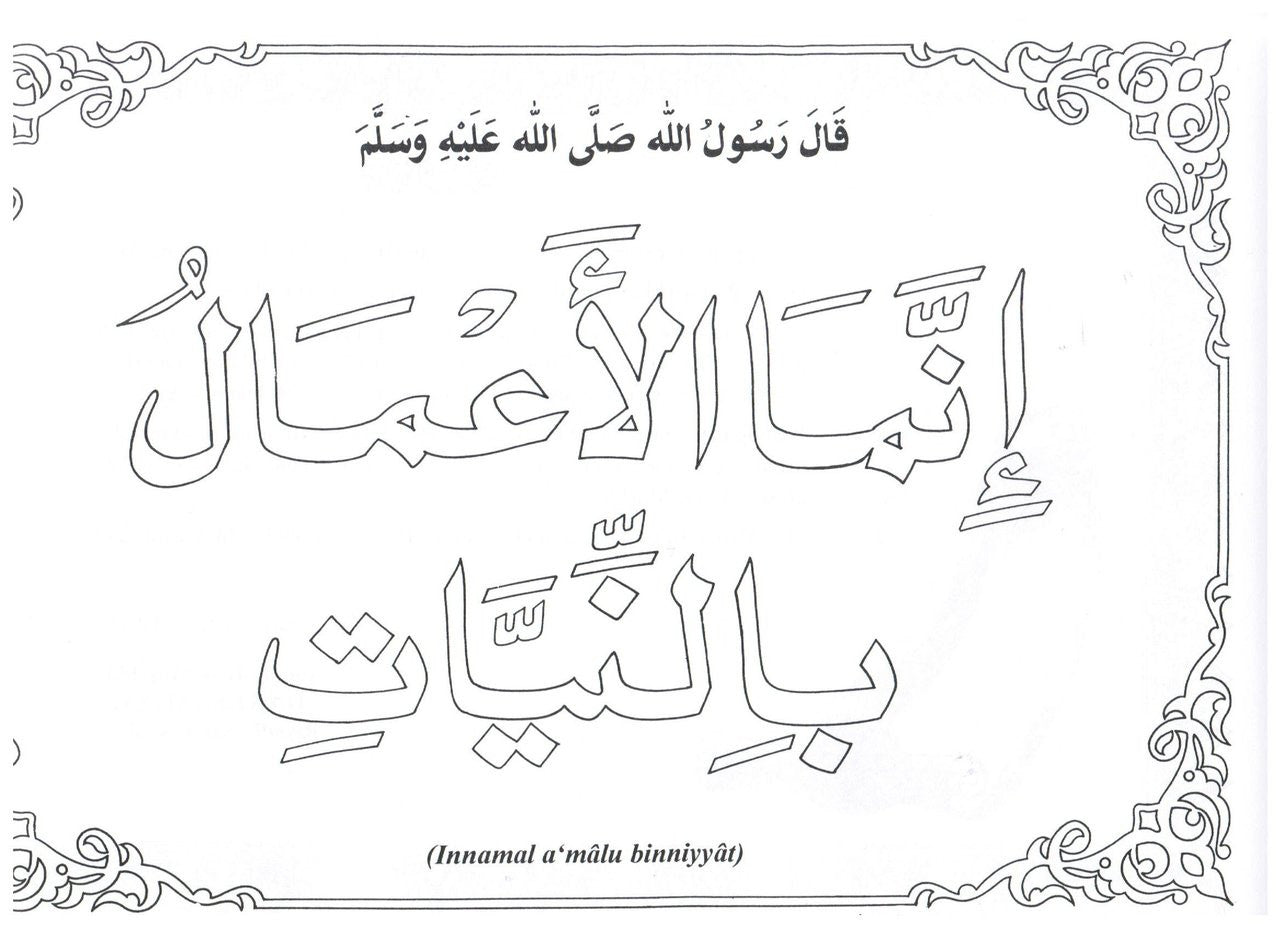 قَالَ رَسُولُ الله صَلَّى الله عَلَيْهِ وَسَلَّمَ
إِنَّمَا الأَعْمَالُ
بِالنِّيَّاتِ
(Innamal a‘mâlu binniyyât)